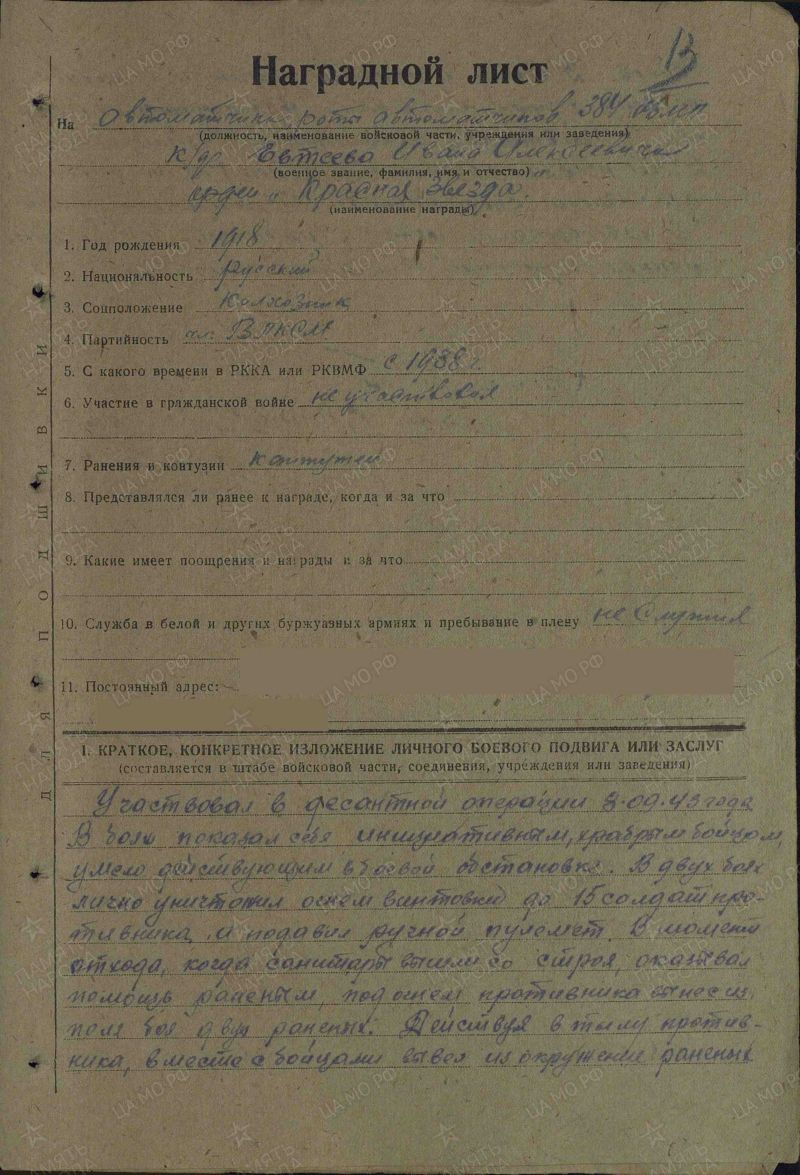 13
Наградной лист
На Автоматчика роты автоматчиков 384 обмп
(должность, наименование войсковой части, учреждения или заведения)
к/др Евтеева Ивана Алексеевича
(военное звание, фамилия, имя и отчество)
орден „Красная Звезда"
(наименование награды)
1. Год рождения 1918
2. Национальность русский
3. Соцположение Колхозник
4. Партийность чл. ВЛКСМ
5. С какого времени в РККА или РКВМФ с 1938 г.
6. Участие в гражданской войне не участвовал
7. Ранения и контузии
8. Представлялся ли ранее к награде, когда и за что
9. Какие имеет поощрения и награды и за что
10. Служба в белой и других буржуазных армиях и пребывание в плену не служил
11. Постоянный адрес:
ДЛЯ ПОДШИВКИ
I. КРАТКОЕ, КОНКРЕТНОЕ ИЗЛОЖЕНИЕ ЛИЧНОГО БОЕВОГО ПОДВИГА ИЛИ ЗАСЛУГ
(составляется в штабе войсковой части, соединения, учреждения или заведения)
Участвовал в десантной операции 8.09.43 года
В бою показал себя инициативным, храбрым бойцом,
умело действующим в боевой обстановке. В двух боях
лично уничтожил огнем винтовки до 15 солдат про-
тивника и подавил ручной пулемет. В момент
отхода, когда санитары вышли со строя, оказывал
помощь раненым, под огнем противника вынес из
поля боя двух раненых. Действуя в тылу против-
ника, вместе с бойцами вывел из окружения раненых